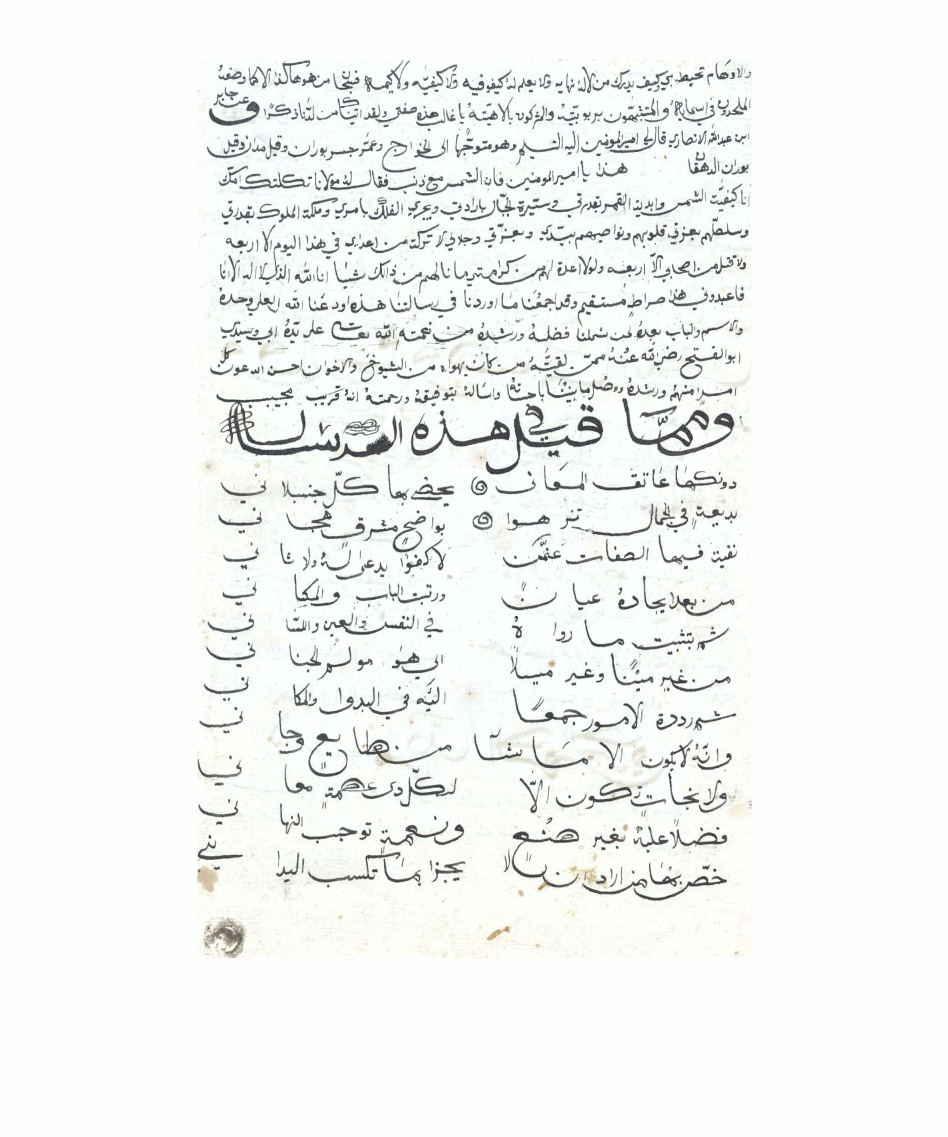 والاوهام تحيط بي وكيف يدرك من لا له نهايه ولا يعلم له كيفوفيه ولا كيفيه ولا كيمه فسبحان من هو هاكذا لا كما وصفه
الملحدون في اسمايه والمتشبهون بربوبيته والمشركون بالاهيته يا غالب هذه صفتي ولقد اتيناك من لدنا ذكرا وعن جابر
ابن عبدالله الانصاري قال لي امير المومنين اليه التسليم وهو متوجها الى الخوارج وعند جسر بوران وقيل مدان وقيل
بوران الدهقان هذا يا امير المومنين فان الشمس مع ذنب فقال له مولانا تكلتك امك
انا كيفيت الشمس وابديت القمر بقدرتي وسيرة الجبال بارادتي ويجري الفلك بامري وملكة الملوك بقدرتي
وسلطتهم بعزتي قلوبهم ونواصيهم بيدي وبعزتي وجلالي لا تركة من اعداي في هذا اليوم الا اربعه
ولا قتل من اصحابي الا اربعه ولولا اعدة لهم من كرامتي ما نالهم من ذالك شيا انا الله الذي لا اله الا انا
فاعبدوني هذا صراط مستقيم وقد اجمعنا ما اوردنا في رسالتنا هذه اودعنا الله العلي وحده
والاسم والباب بعده لمن شملنا فضله ورشده من نعمته الله تعالى على يده ابي وسيدي
ابو الفتح رضي الله عنه ممن لقيته من كان يهواه من الشيوخ والاخوان احسن الله عون كل
امر منهم ورشده ووصل ما بيننا باحسانه واساله بتوفيقه ورحمته انه قريب مجيب
ومما قيل في هذه الرساله
دونكها عاتق المعان يحضى بها كل جنبلا ني
بديعة في الجمال تزهوا بواضح مشرق هجا ني
نقية فيها الصفات عنمن لا كفوا يدعى له ولا ثا ني
من بعد ايجاده عيان ورتبت الباب والمكا ني
ثم تثبيت ما رواه في النفس والعين واللسا ني
من غير مينا وغير ميلا الى هو مولم الجنا ني
ثم رددة الامور جمعا اليه في البدوا والمكا ني
وانه لا يكون الا ما شا من طايع وجا ني
ولا نجات تكون الا لكل ذي عصمة معا نيا
فضلا عليه بغير صنع ونعمة توجب النها ني
خص بها من اراد ان لا يجزا بما تكسب اليدا يني